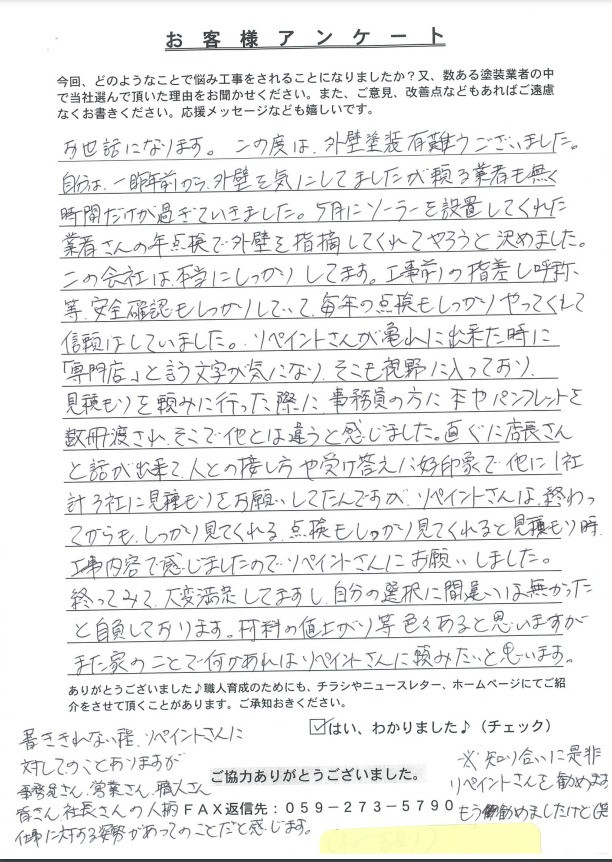 お客様アンケート
今回、どのようなことで悩み工事をされることになりましたか？又、数ある塗装業者の中
で当社選んで頂いた理由をお聞かせください。また、ご意見、改善点などもあればご遠慮
なくお書きください。応援メッセージなども嬉しいです。
お世話になります。この度は、外壁塗装有難うございました。
自分は、一昨年前から、外壁を気にしてましたが頼る業者も無く
時間だけが過ぎていきました。5月にソーラーを設置してくれた
業者さんの年点検で外壁を指摘してくれてやろうと決めました。
この会社は、本当にしっかりしてます。工事前の指差し呼称
等、安全確認もしっかりしていて、毎年の点検もしっかりやってくれて
信頼はしていました。リペイントさんが亀山に出来た時に
「専門店」と言う文字が気になり、そこも視野に入っており、
見積もりを頼みに行った際に、事務員の方に本やパンフレットを
数冊渡され、そこで他とは違うと感じました。直ぐに店長さん
と話が出来て、人との接し方や受け答えに好印象で他に1社
計3社に見積もりをお願いしてたんですが、リペイントさんは、終わっ
てからも、しっかり見てくれる、点検もしっかり見てくれると見積もり時、
工事内容で感じましたのでリペイントさんにお願いしました。
終ってみて、大変満足してますし、自分の選択に間違いは無かった
と自負しております。材料の値上がり等色々あると思いますが
また家のことで何かあればリペイントさんに頼みたいと思います。
ありがとうございました♪職人育成のためにも、チラシやニュースレター、ホームページにてご紹
介をさせて頂くことがあります。ご承知おきください。
☑はい、わかりました♪（チェック）
書ききれない程、リペイントさんに
対してのことありますが
事務員さん、営業さん、職人さん
皆さん、社長さんの人柄
仕事に対する姿勢があってのことだと感じます。
ご協力ありがとうございました。
FAX返信先：059-273-5790
※知り合いに是非
リペイントさんを勧めます
もう勧めましたけど(笑